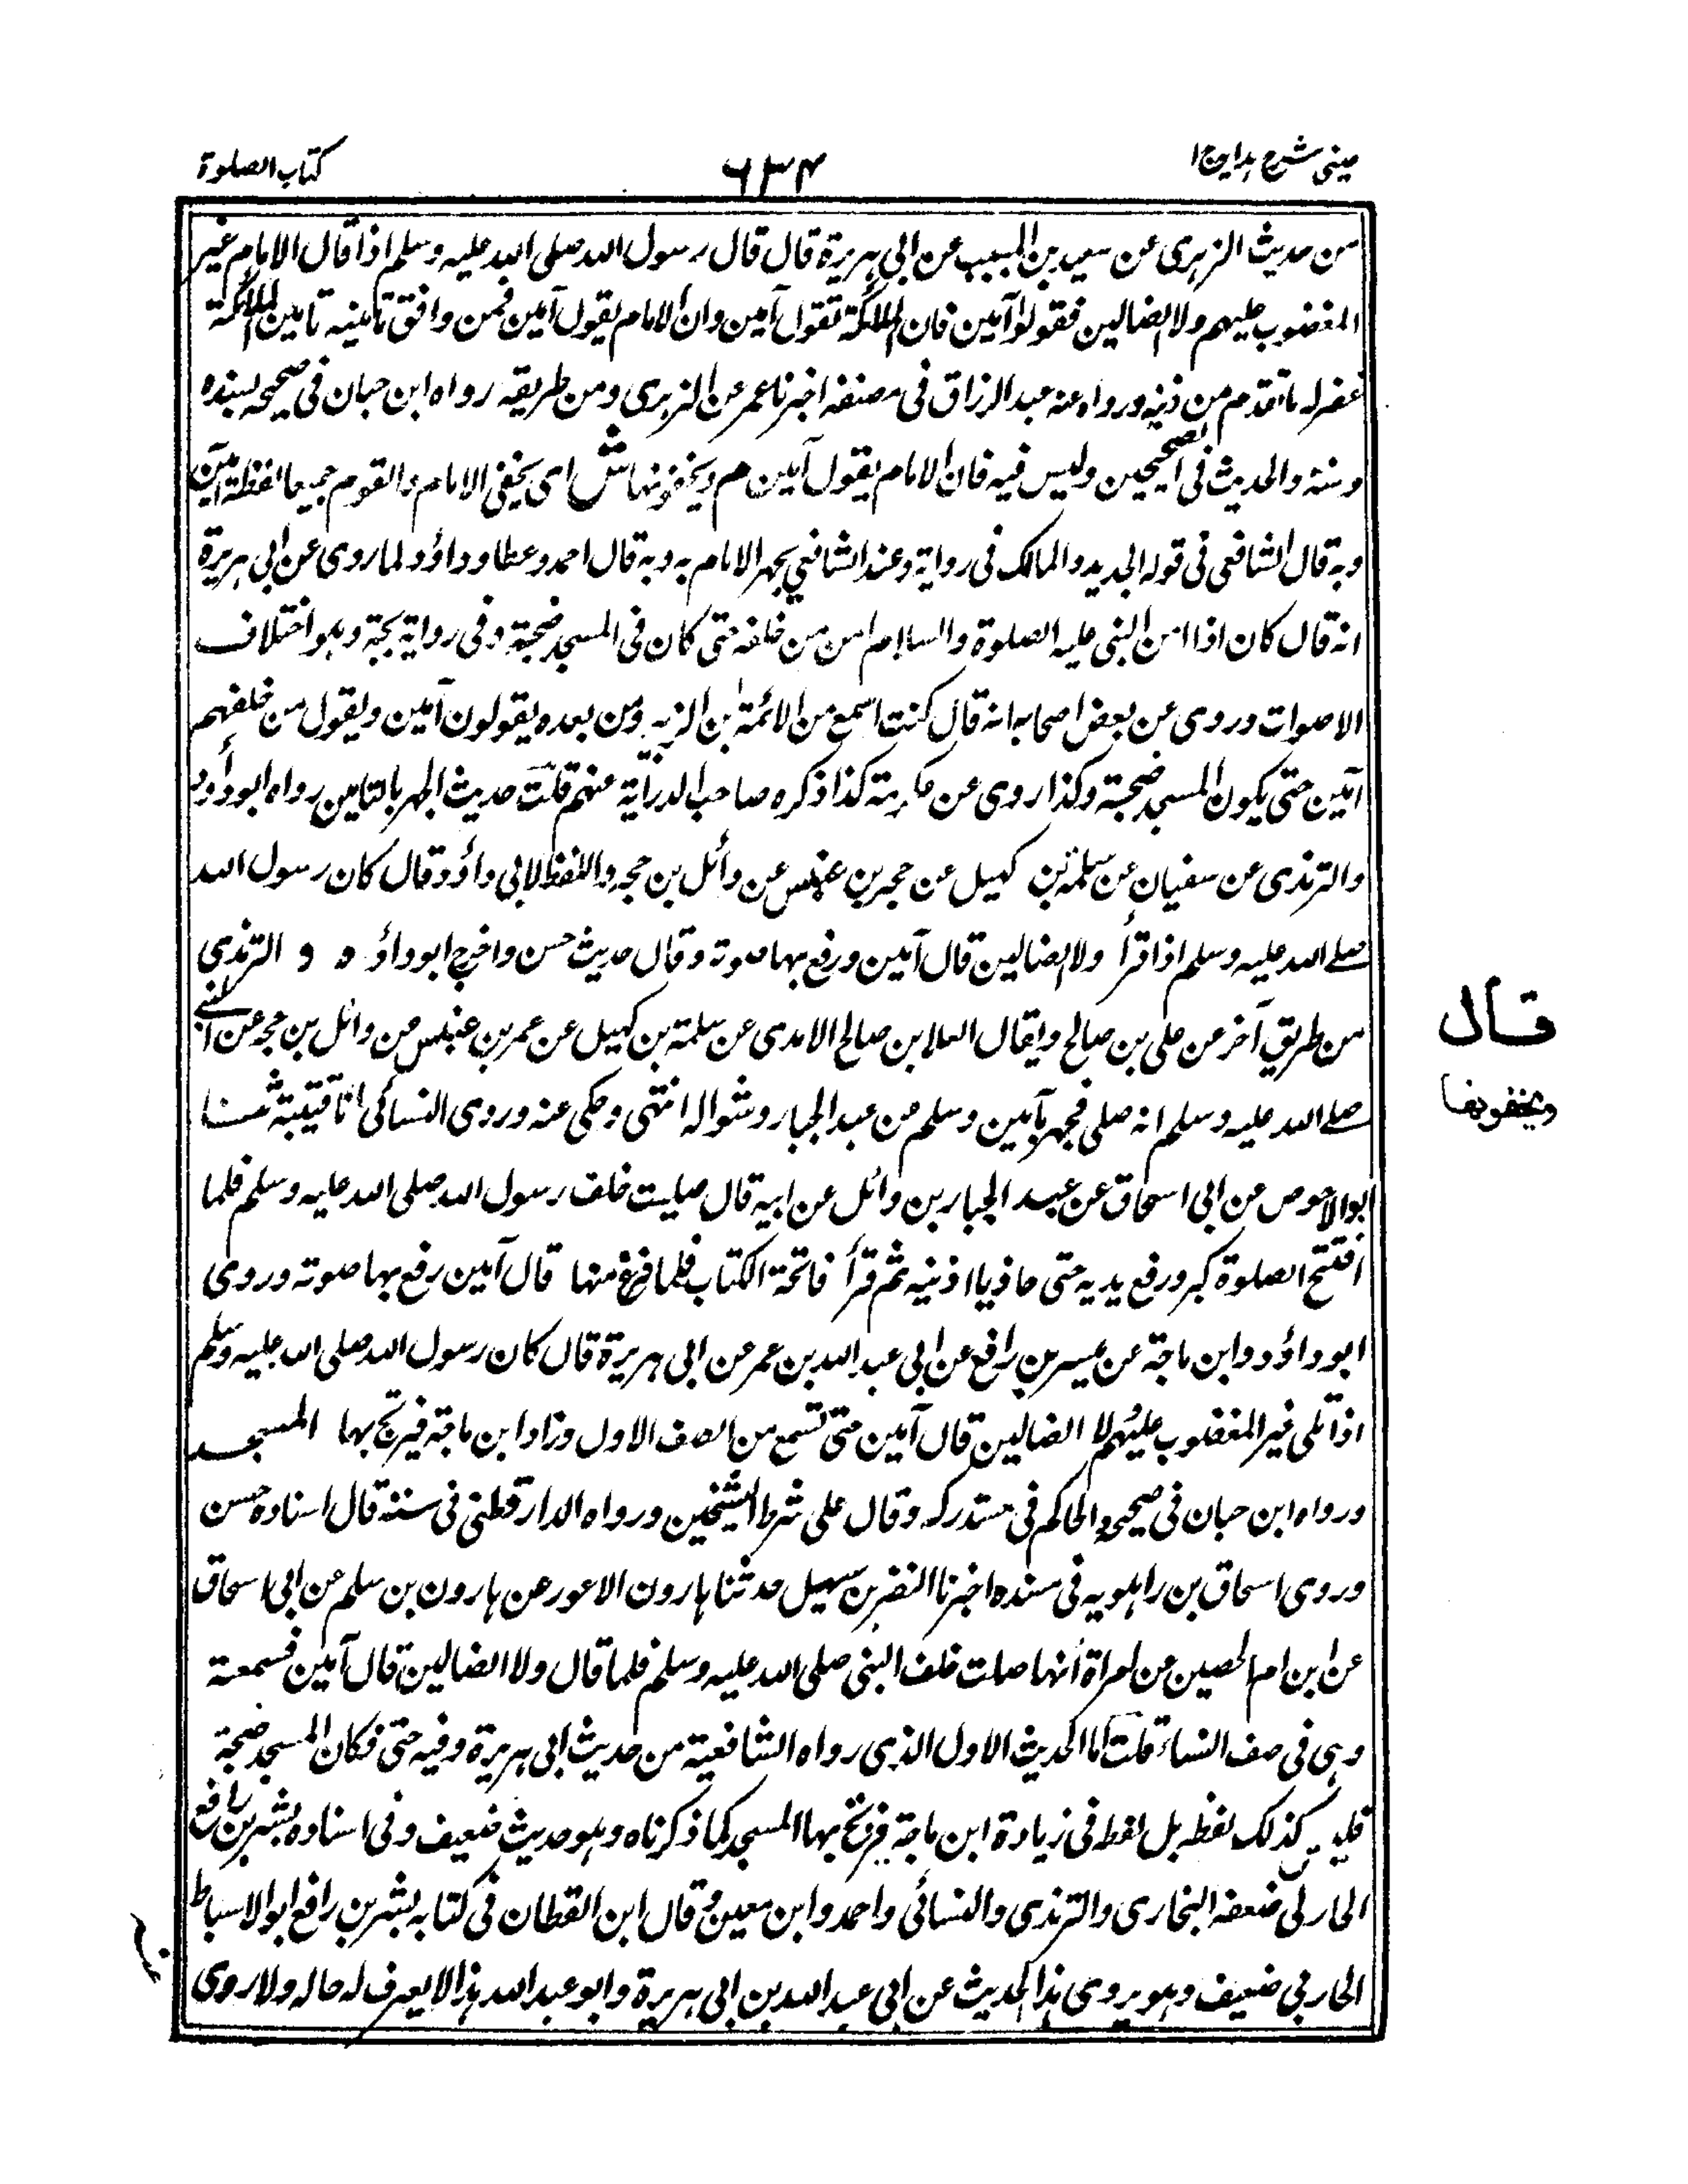 عيني شرح هدايه ج ا
٦٣٤
كتاب الصلوة
من حديث الزهرى عن سعيد بن المسيب عن ابى هريرة قال قال رسول الله صلى الله عليه وسلم اذا قال الامام غير
المغضوب عليهم ولا الضالين فقولوا آمين فان الملائكة تقول آمين وان الامام يقول آمين فمن وافق تامينه تامين الملائكة
غفر له ما تقدم من ذنبه ورواه عنه عبد الرزاق فى مصنفه اخبرنا معمر عن الزهرى ومن طريقه رواه ابن حبان فى صحيحه بسنده
ومتنه والحديث فى الصحيحين وليس فيه فان الامام يقول آمين م ويخفونها ش اى يخفى الامام والقوم جميعا لفظة آمين
وبه قال الشافعى فى قوله الجديد والمالك فى رواية وعند الشافعي يجهر الامام به وبه قال احمد وعطا وداؤد لما روى عن ابى هريرة
انه قال كان اذا امن النبى عليه الصلوة والسلام امن من خلفه حتى كان فى المسجد ضجة وفى رواية لجة وهو اختلاف
الاصوات وروى عن بعض اصحابه انه قال كنت اسمع من الائمة ابن الزبير ومن بعده يقولون آمين ويقول من خلفهم
آمين حتى يكون المسجد ضجة وكذا روى عن عكرمة كذا ذكره صاحب الدراية عنهم قلت حديث الجهر بالتامين رواه ابو داؤد
والترمذى عن سفيان عن سلمة بن كهيل عن حجر بن عنبس عن وائل بن حجر واللفظ لابى داؤد قال كان رسول الله
صلى الله عليه وسلم اذا قرأ ولا الضالين قال آمين ورفع بها صوته وقال حديث حسن واخرج ابو داؤد و الترمذى
من طريق آخر عن على بن صالح ويقال العلا بن صالح الاسدى عن سلمة بن كهيل عن حجر بن عنبس عن وائل بن حجر عن النبى
صلى الله عليه وسلم انه صلى فجهر بآمين وسلم من عبد الجبار وشواله انتهى وحكى عنه وروى النسائى انا قتيبة ثنا
ابو الاحوص عن ابى اسحاق عن عبد الجبار بن وائل عن ابيه قال صليت خلف رسول الله صلى الله عليه وسلم فلما
افتتح الصلوة كبر ورفع يديه حتى حاذيا اذنيه ثم قرأ فاتحة الكتاب فلما فرغ منها قال آمين رفع بها صوته وروى
ابو داؤد وابن ماجة عن بشر بن رافع عن ابى عبد الله بن عمر عن ابى هريرة قال كان رسول الله صلى الله عليه وسلم
اذا تلى غير المغضوب عليهم ولا الضالين قال آمين حتى تسمع من الصف الاول وزاد ابن ماجة فيرتج بها المسجد
ورواه ابن حبان فى صحيحه والحاكم فى مستدركه وقال على شرط الشيخين ورواه الدارقطنى فى سننه قال اسناده حسن
وروى اسحاق بن راهويه فى مسنده اخبرنا النضر بن سهيل حدثنا هارون الاعور عن هارون بن سلم عن ابى اسحاق
عن ابن ام الحصين عن امراة انها صلت خلف النبى صلى الله عليه وسلم فلما قال ولا الضالين قال آمين فسمعته
وهى فى صف النساء قلت اما الحديث الاول الذى رواه الشافعية من حديث ابى هريرة وفيه حتى فكان المسجد ضجة
فليس كذلك لفظه بل لفظه فى زيادة ابن ماجة فيرتج بها المسجد كما ذكرناه وهو حديث ضعيف وفى اسناده بشر بن رافع
الحارثى ضعفه البخارى والترمذى والنسائى واحمد وابن معين وقال ابن القطان فى كتابه بشر بن رافع ابو الاسباط
الحارثي ضعيف وهو يروى هذا الحديث عن ابى عبد الله بن ابى هريرة وابو عبد الله هذا لا يعرف له حاله ولا روى
قال
ويخفونها